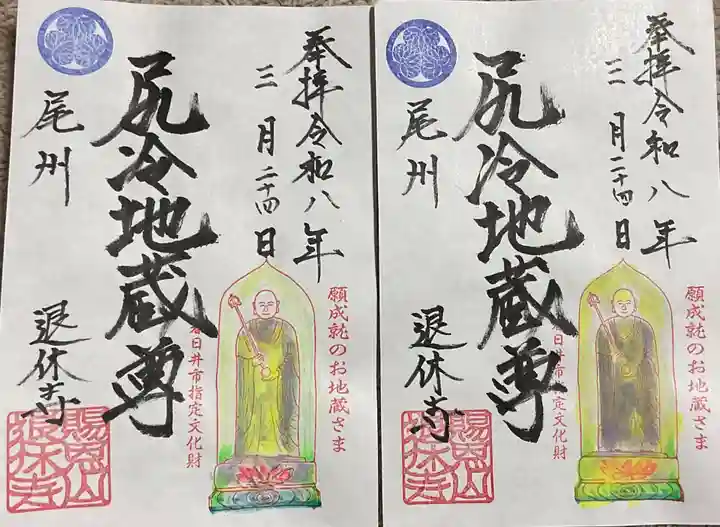 奉拝令和八年
三月二十四日
願成就のお地蔵さま
尻冷地蔵尊
春日井市指定文化財
尾州 退休寺
賜恩山
退休寺
奉拝令和八年
三月二十四日
願成就のお地蔵さま
尻冷地蔵尊
春日井市指定文化財
尾州 退休寺
賜恩山
退休寺